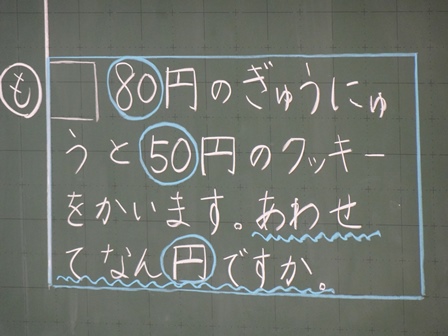 も
80円のぎゅうにゅ
うと50円のクッキー
をかいます。あわせ
てなん円ですか。